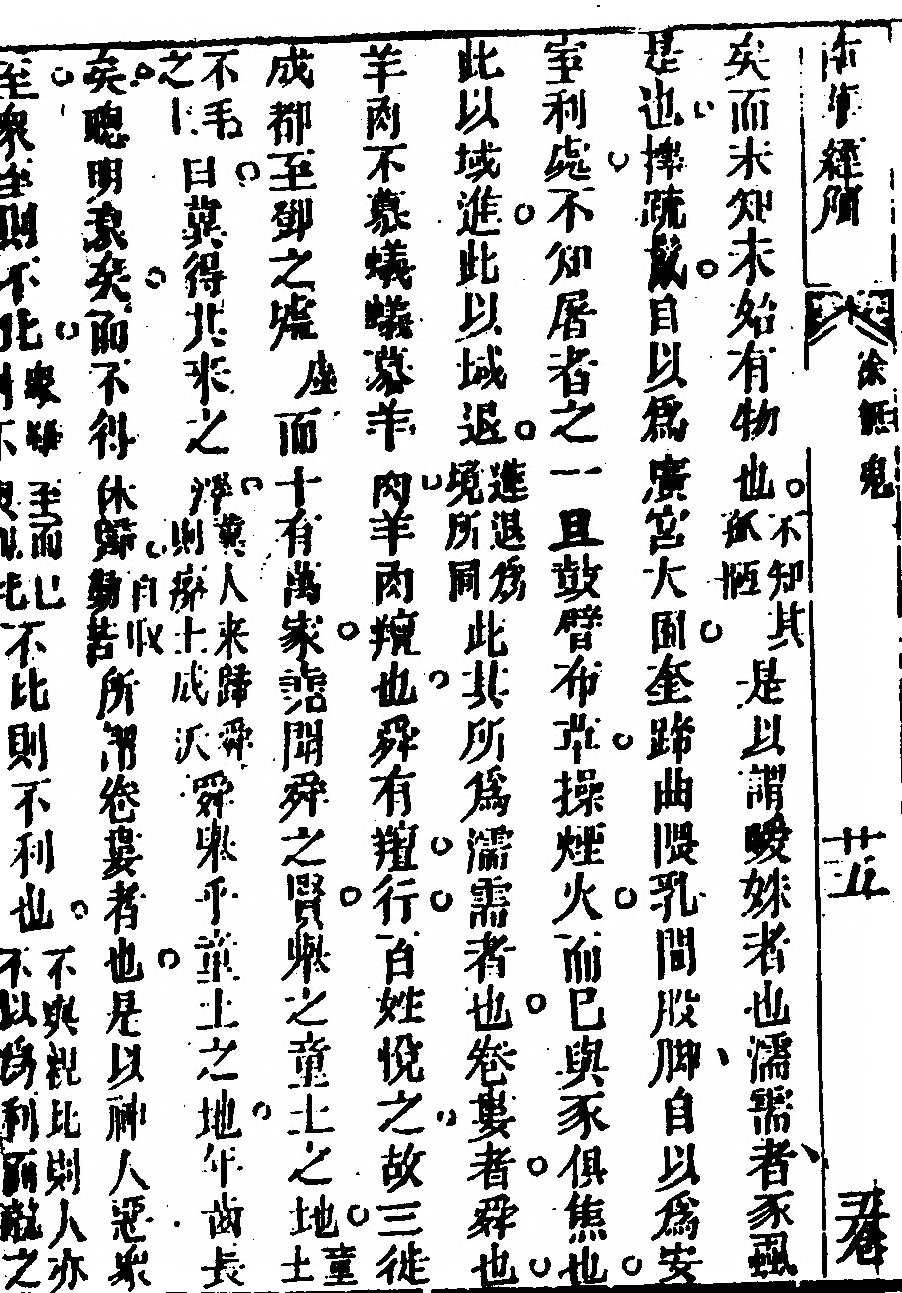 南華經
徐無鬼
廿五
三卷
矣而未知未始有物也不知其孤陋是以謂暖姝者也濡需者豕蝨
是也擇疏鬣自以爲廣宮大囿奎蹄曲隈乳間股脚自以爲安
室利處不知屠者之一旦鼓臂布草操煙火而已與豕俱焦也
此以域進此以域退進退爲境所同此其所爲濡需者也卷婁者舜也
羊肉不慕蟻蟻慕羊肉羊肉羶也舜有羶行百姓悅之故三徙
成都至鄧之墟虛而十有萬家堯聞舜之賢舉之童土之地童土
不毛之土曰冀得其來之澤冀人来歸舜則瘠土成沃舜舉乎童土之地年齒長
矣聰明衰矣而不得休歸自收勤苦所謂卷婁者也是以神人惡衆
至衆至則不比衆雖至而已不比則不利也不與親比則人亦不以爲利而之